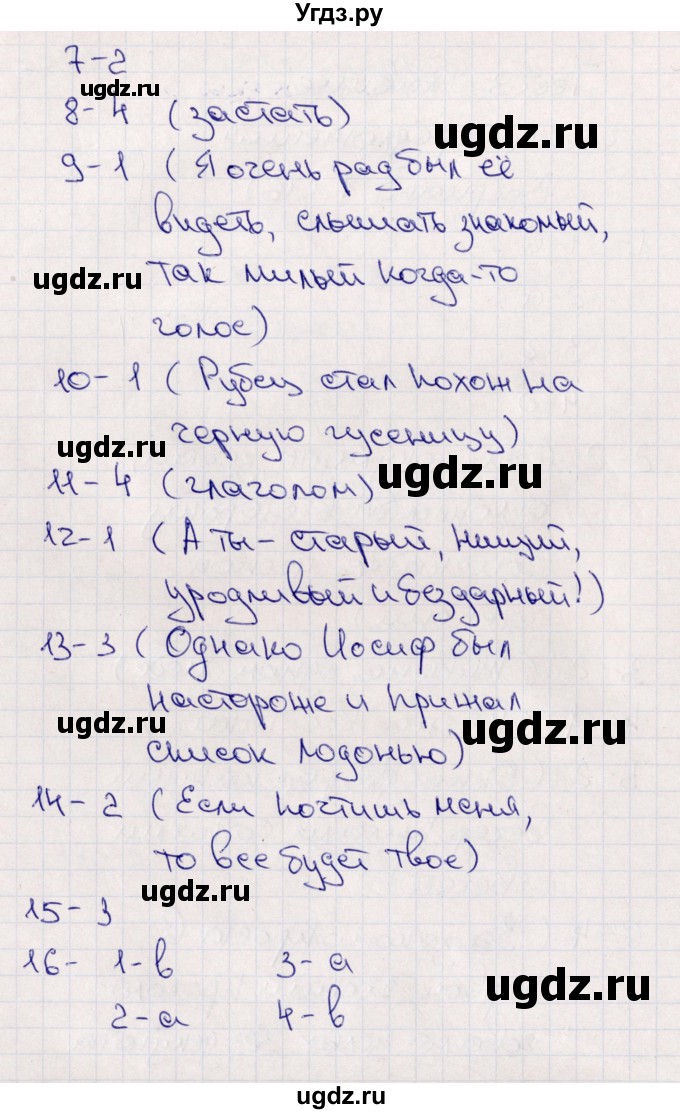 Угдз.ру
7-2
ugdz.ru
8-4 (застать)
ugdz.ru
9-1 (Я очень рад был её
видеть, слышать знакомый,
ugdz.ru
так милый когда-то
ugdz.ru
голос)
10-1 (Рубец стал похож на
черную гусеницу)
ugdz.ru
ugdz.ru
11-4 (глаголом)
12-1 (А ты - старый, нищий,
уродливый и бездарный!)
13-3 (Однако Иосиф был
настороже и прижал
ugdz.ru
ugdz.ru
список лодонью)
14-2 (Если почтишь меня,
то все будет твое)
ugdz.ru
15-3
16- 1-в 3-а
ugdz.ru
2-а 4-в
ugdz.ru